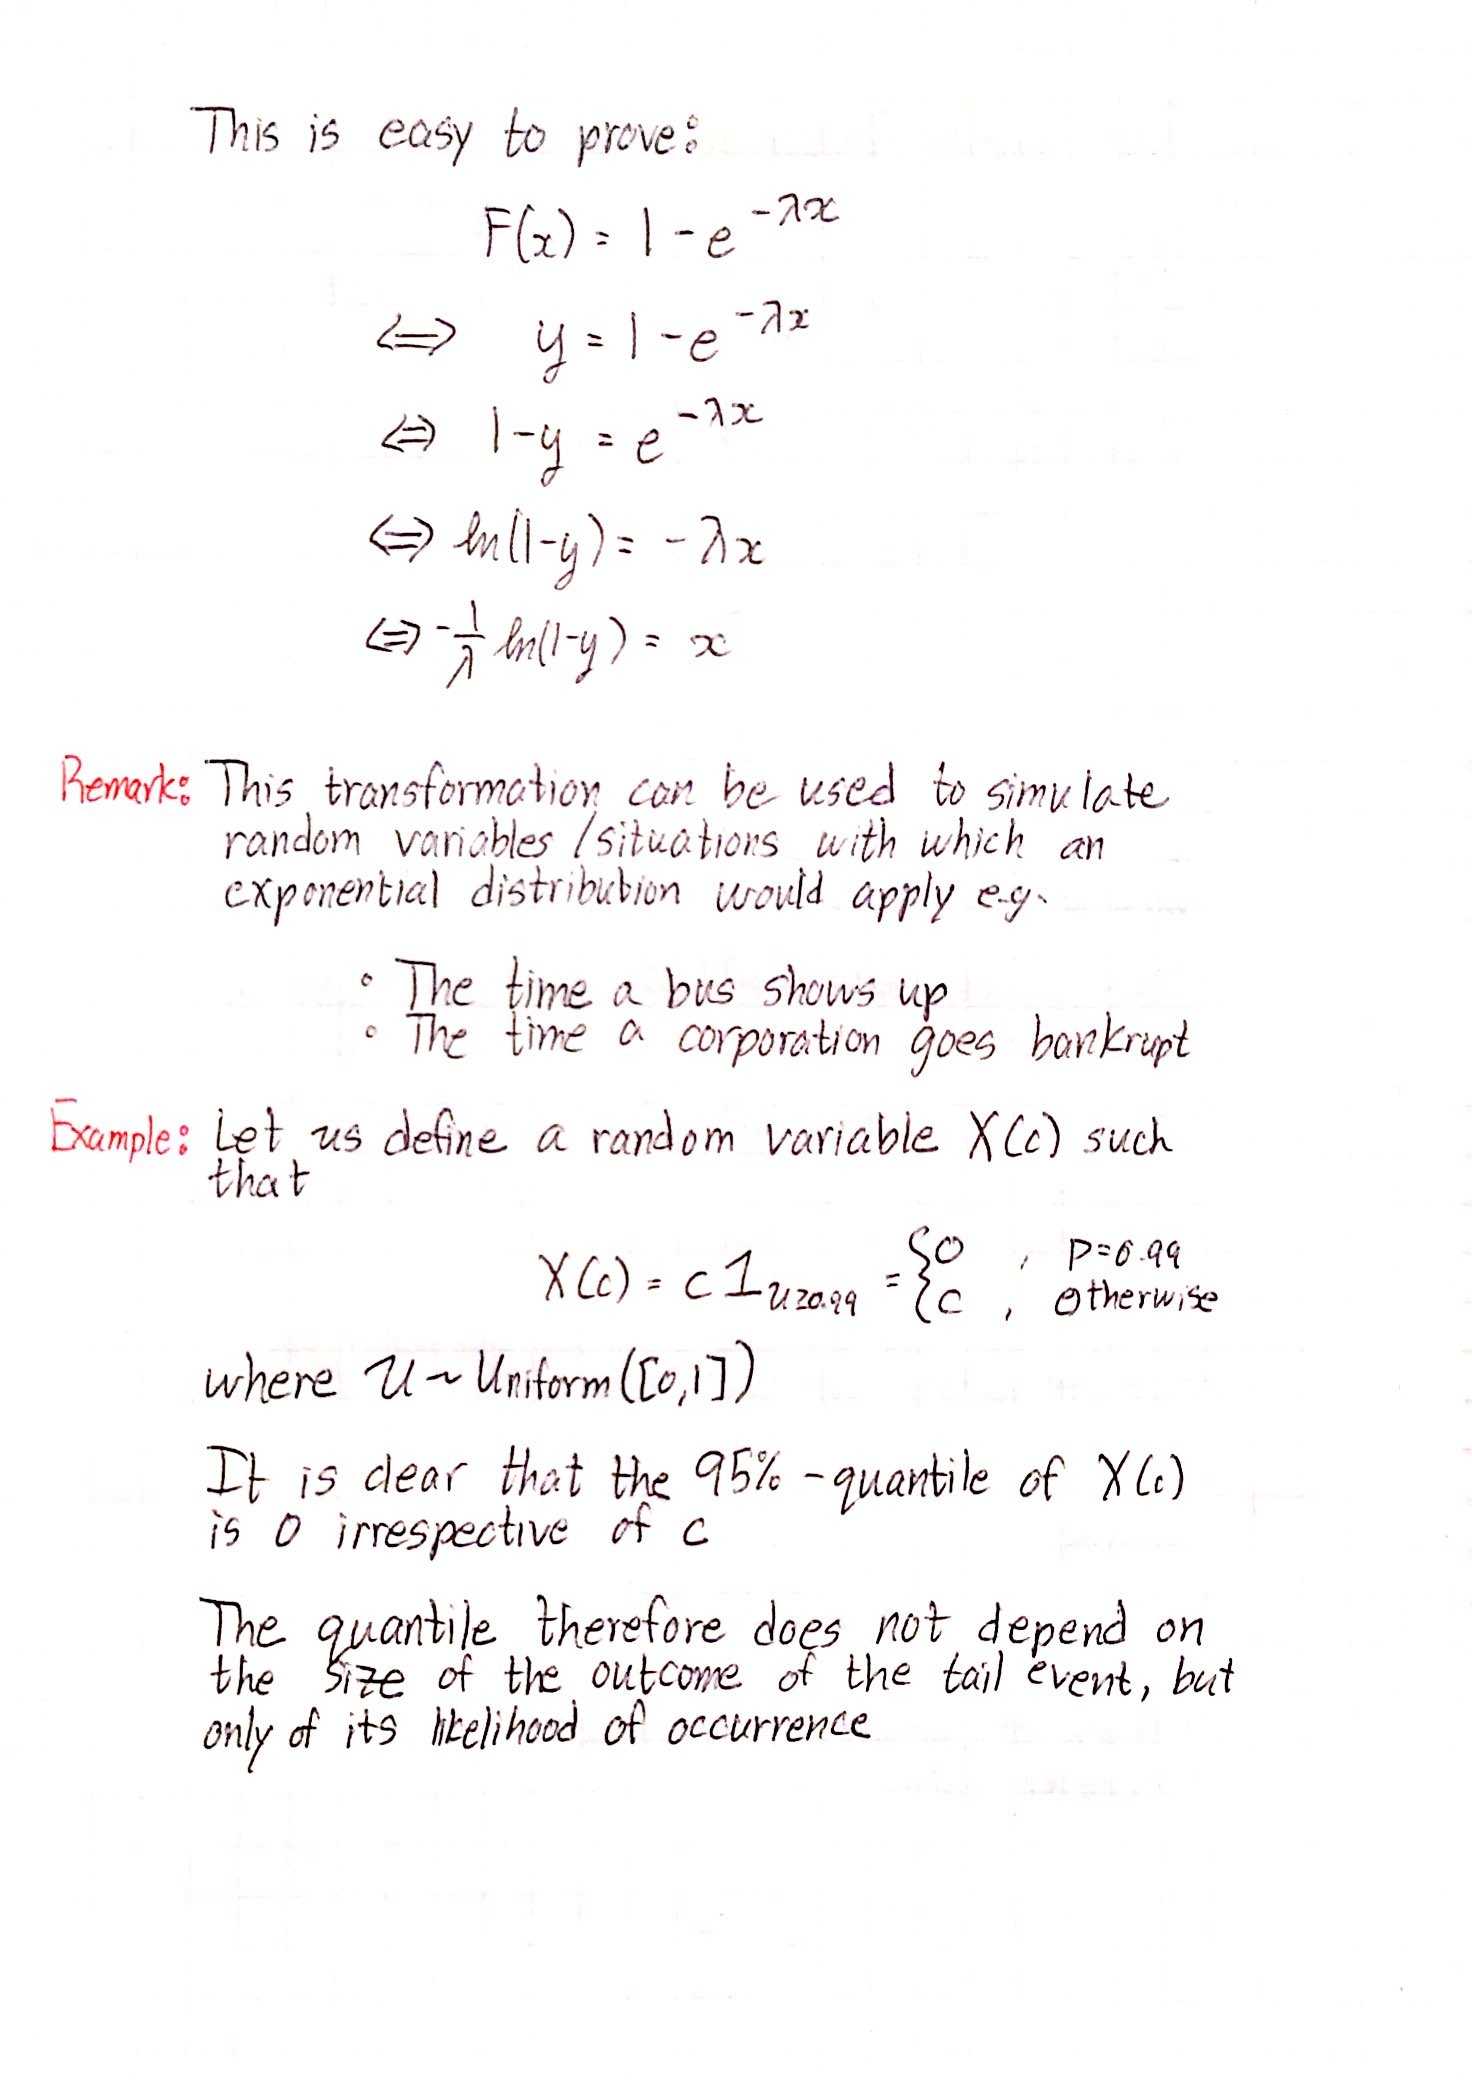 This is easy to prove:
F(x) = 1 - e^{-λx}
⇔ y = 1 - e^{-λx}
⇔ 1-y = e^{-λx}
⇔ ln(1-y) = -λx
⇔ -1/λ ln(1-y) = x
Remark: This transformation can be used to simulate
random variables / situations with which an
exponential distribution would apply e.g.
• The time a bus shows up
• The time a corporation goes bankrupt
Example: Let us define a random variable X(c) such
that
X(c) = c 1_{U≥0.99} = { 0 , p=0.99
{ c , otherwise
where U ~ Uniform([0,1])
It is clear that the 95% - quantile of X(c)
is 0 irrespective of c
The quantile therefore does not depend on
the size of the outcome of the tail event, but
only of its likelihood of occurrence